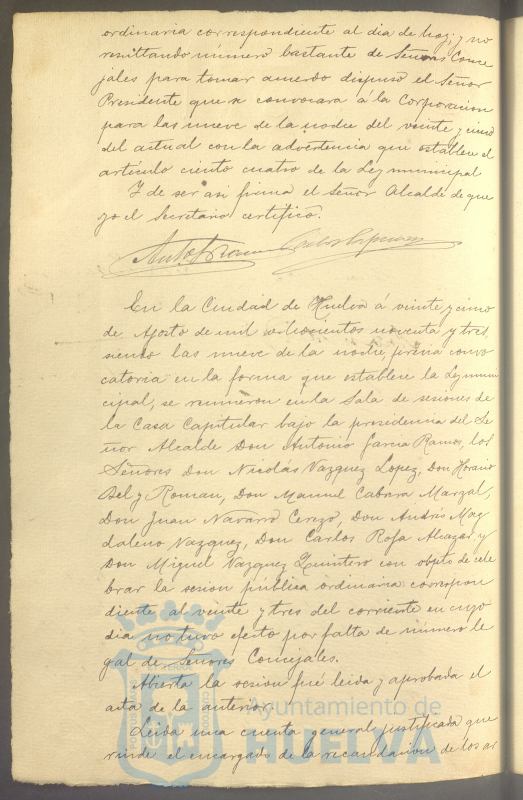 ordinaria correspondiente al dia de hoy; y no
resultando número bastante de Señores Conce
jales para tomar acuerdo dispuso el Señor
Presidente que se convocara á la Corporacion
para las nueve de la noche del veinte y cinco
del actual con la advertencia que establece el
artículo ciento cuatro de la Ley municipal
Y de ser asi firma el Señor Alcalde de que
yo el Secretario certifico.
En la Ciudad de Huelva á veinte y cinco
de Agosto de mil ochocientos noventa y tres
siendo las nueve de la noche, previa convo
catoria en la forma que establece la Ley muni
cipal, se reunieron en la Sala de sesiones de
la Casa Capitular bajo la presidencia del Se
ñor Alcalde Don Antonio Garcia Ramos, los
Señores Don Nicolás Vazquez Lopez, Don Horacio
Bel y Roman, Don Manuel Cabrera
Don Juan Navarro Cerezo, Don Andrés Mag
daleno Vazquez, Don Carlos Rofa Alcazar, y
Don Miguel Vazquez Quintero con objeto de cele
brar la sesion pública ordinaria correspon
diente al veinte y tres del corriente en cuyo
dia no tuvo efecto por falta de número le
gal de Señores Concejales.
Abierta la sesion fué leida y aprobada el
acta de la anterior.
Leida una cuenta general justificada que
rinde el encargado de la recaudacion de los ar
Ayuntamiento de
HUELVA